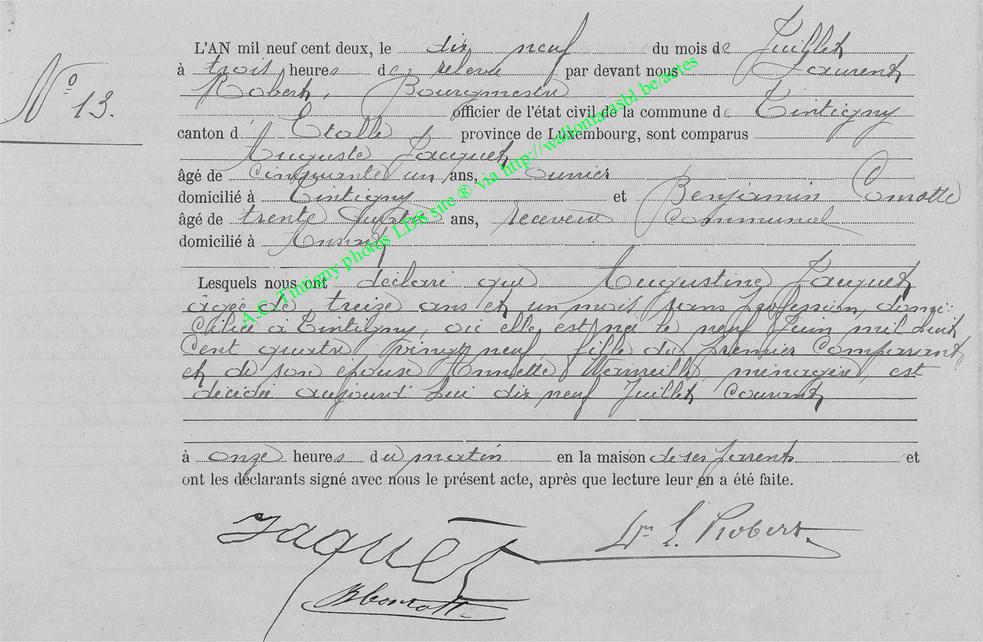 N° 13.
L'AN mil neuf cent deux, le dix neuf du mois de Juillet
à trois heures de relevée par devant nous Laurent
Robert, Bourgmestre
officier de l'état civil de la commune de Tintigny
canton d' Etalle province de Luxembourg, sont comparus
Auguste Jacquet
âgé de cinquante un ans, ouvrier
domicilié à Tintigny et Benjamin Comotte
âgé de trente ans, receveur communal
domicilié à Ansart
Lesquels nous ont déclaré que Augustine Jacquet
âgée de treize ans et un mois sans profession, domi-
ciliée à Tintigny, où elle est née le neuf Juin mil huit
cent quatre vingt neuf, fille du premier comparant
et de son épouse Annette ménagère, est
décédée aujourd'hui dix neuf Juillet courant
à onze heures du matin en la maison de ses parents et
ont les déclarants signé avec nous le présent acte, après que lecture leur en a été faite.
Jaquet
L. Robert
B Comott
A.C. Tintigny photos LDS site ® via http://wallonia-asbl.be/actes